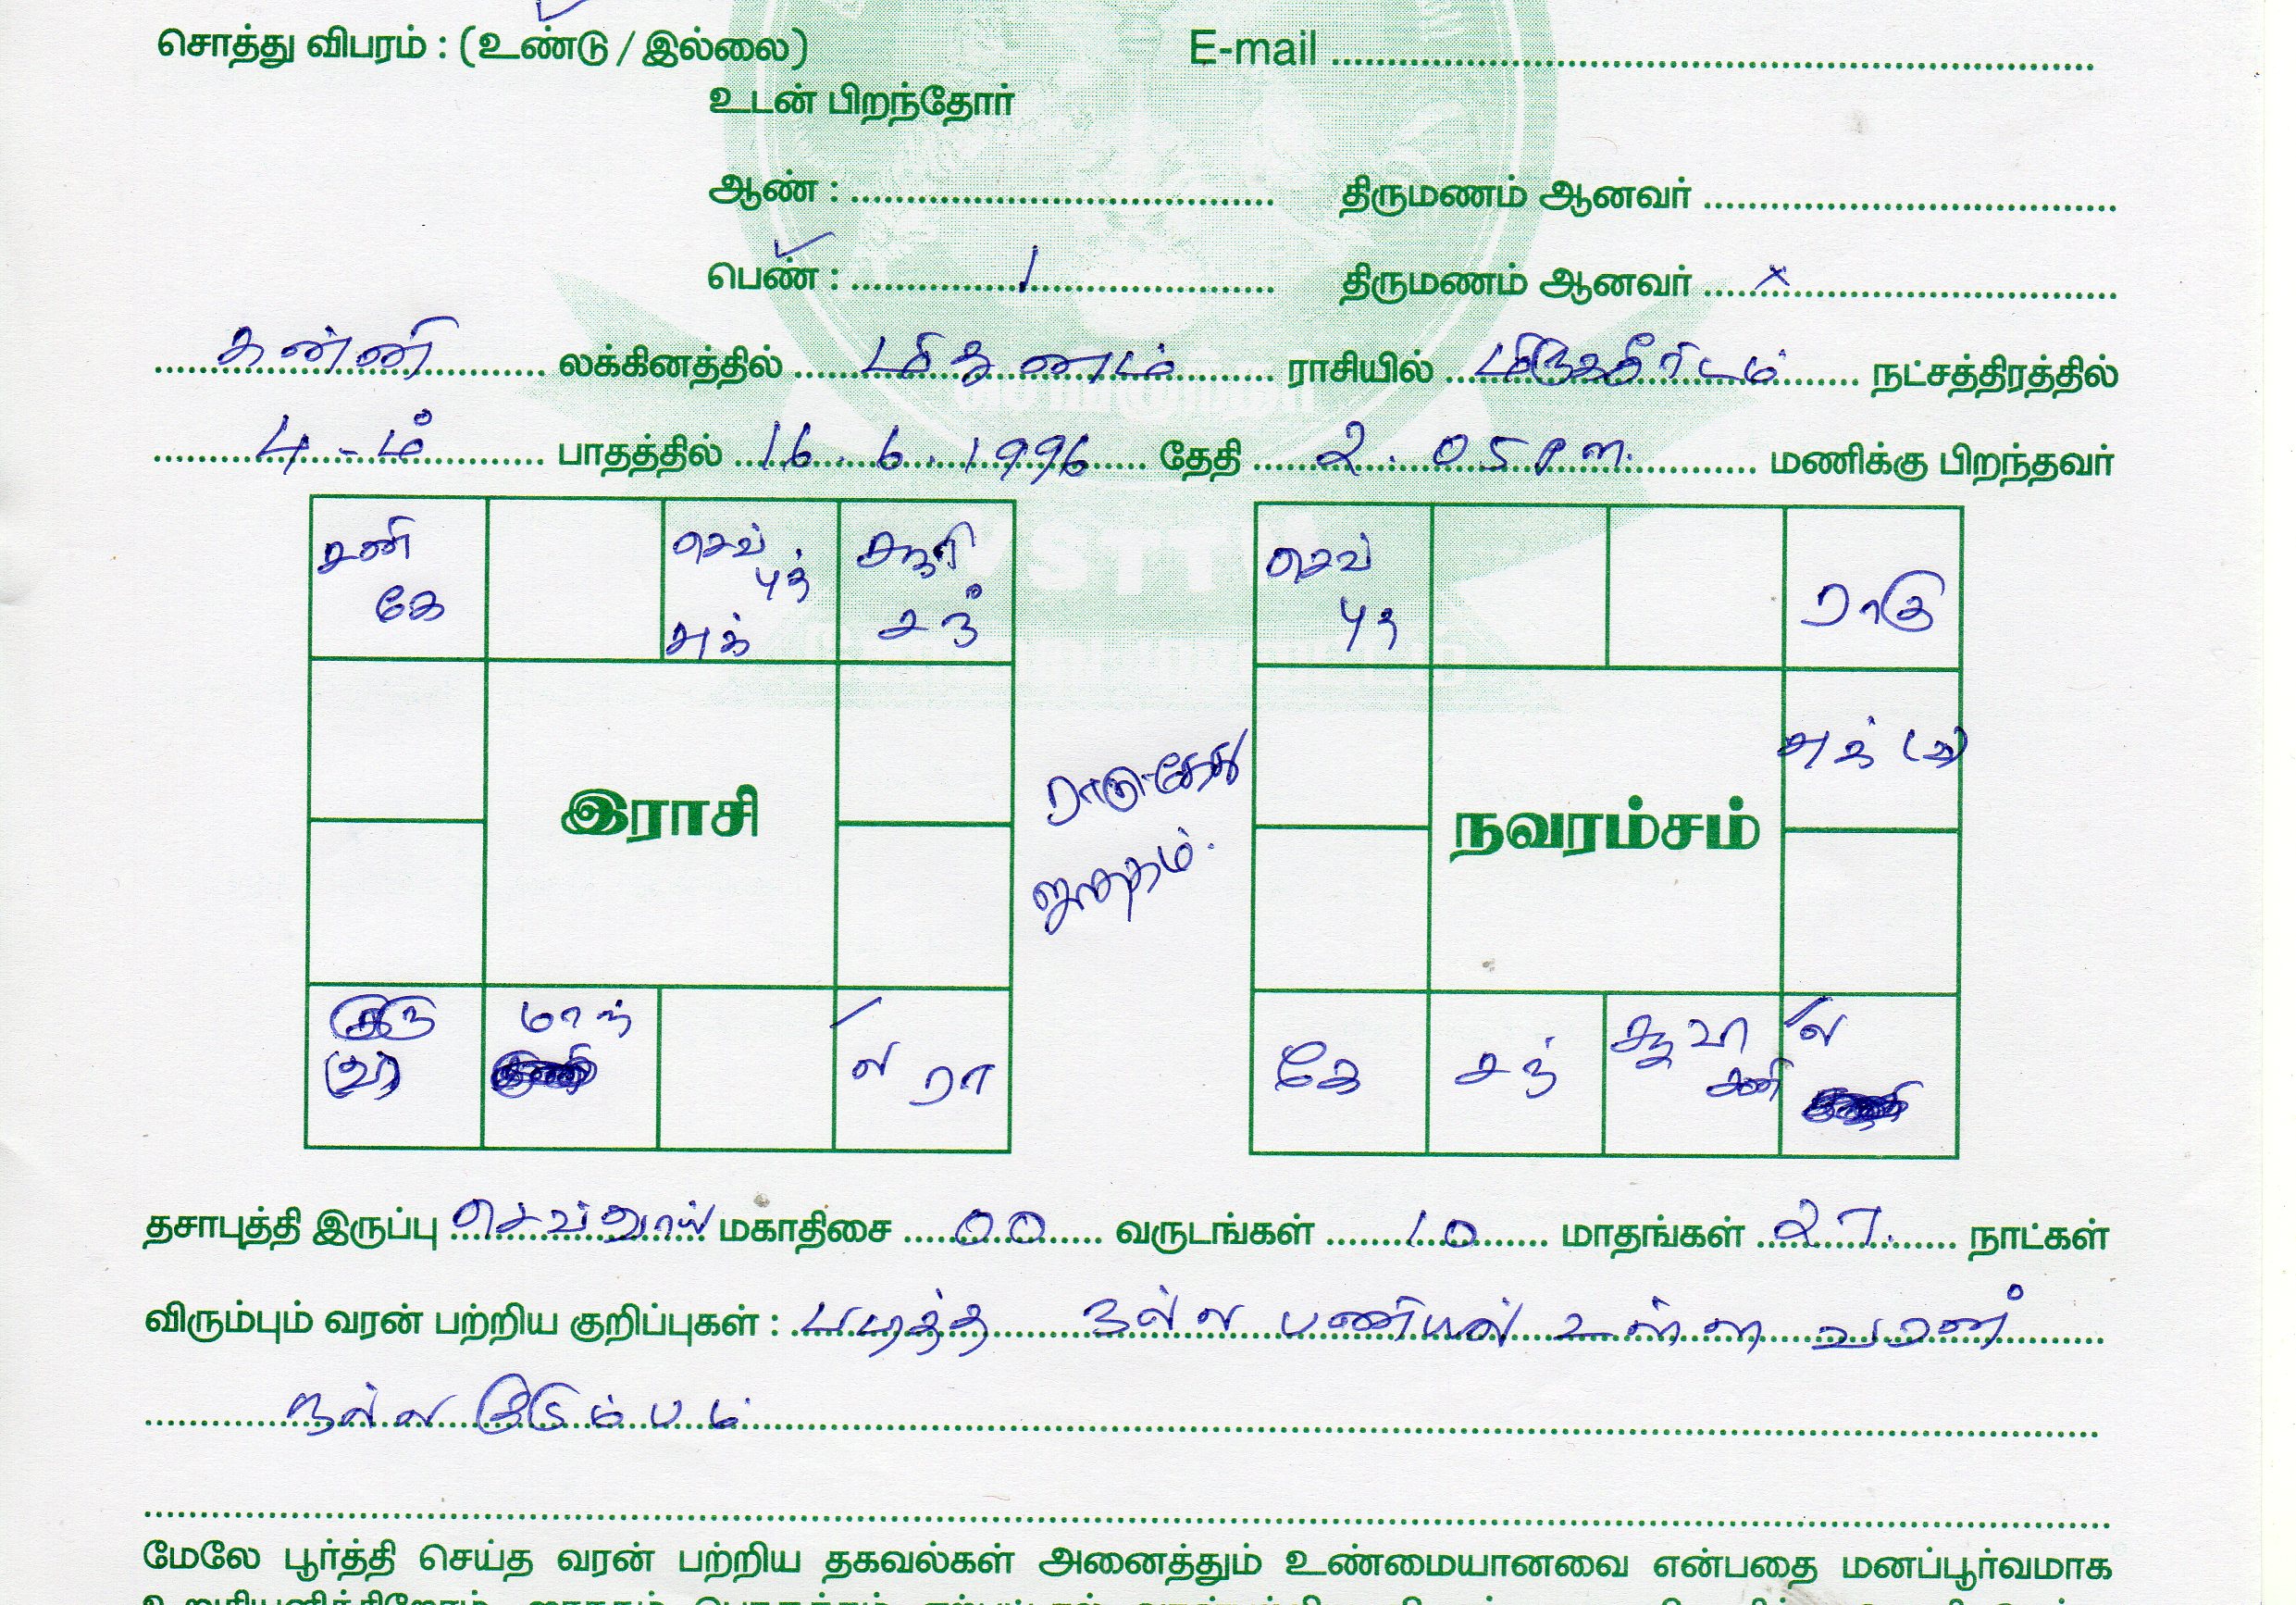 சொத்து விபரம் : (உண்டு / இல்லை) E-mail
உடன் பிறந்தோர்
ஆண் : திருமணம் ஆனவர்
பெண் : 1 திருமணம் ஆனவர் x
கன்னி லக்கினத்தில் மிதுனம் ராசியில் மிருகசீரிடம் நட்சத்திரத்தில்
4-ம் பாதத்தில் 16.6.1996 தேதி 2.05 pm. மணிக்கு பிறந்தவர்
சனி செவ் சூரி செவ்
கே புத் சந் புத் ராகு
சுக்
சுக் (வ)
ராகு-கேது
இராசி நவரம்சம்
ஜாதகம்.
குரு மாந் ல ரா கே சந் சூ வி ல
(வ) சனி
தசாபுத்தி இருப்பு செவ்வாய் மகாதிசை 00 வருடங்கள் 10 மாதங்கள் 27. நாட்கள்
விரும்பும் வரன் பற்றிய குறிப்புகள் : படித்த நல்ல பணியில் உள்ள வரன்
நல்ல குடும்பம்
மேலே பூர்த்தி செய்த வரன் பற்றிய தகவல்கள் அனைத்தும் உண்மையானவை என்பதை மனப்பூர்வமாக